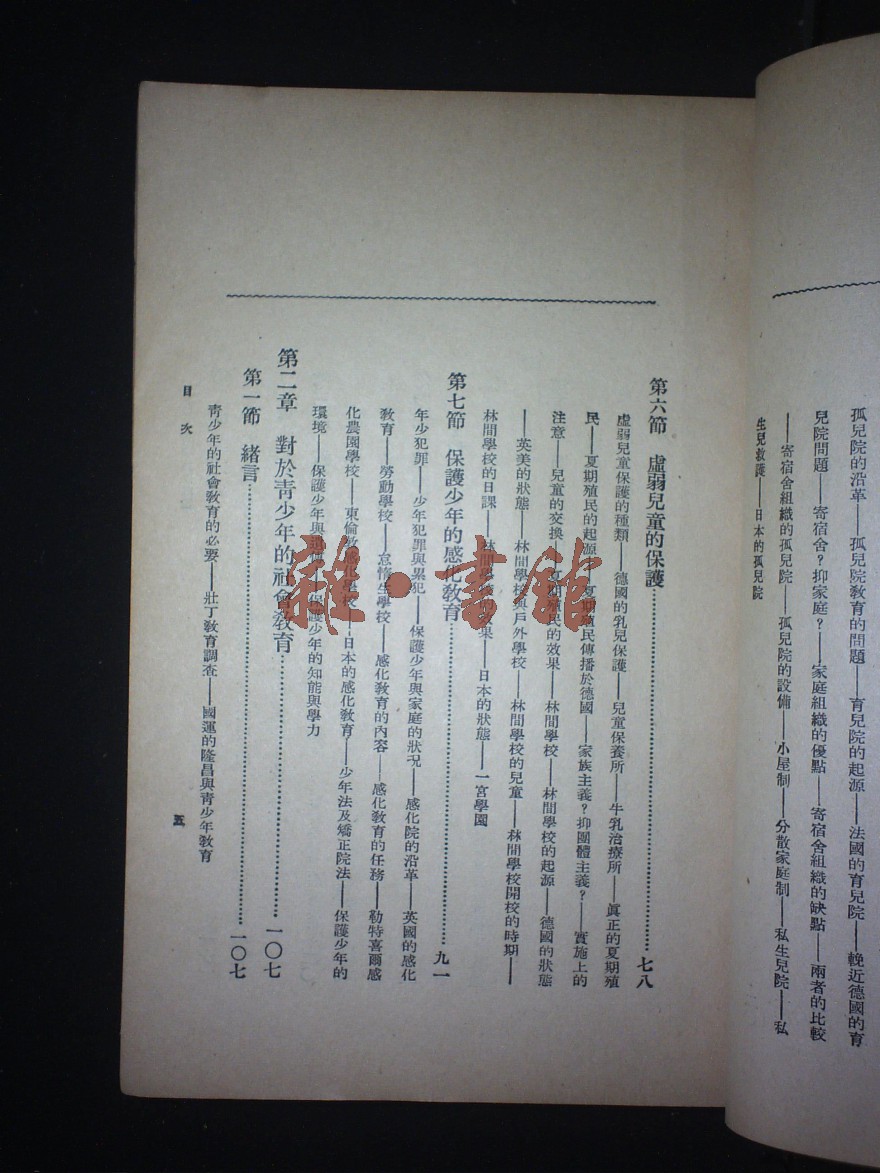 孤兒院的沿革——孤兒院敎育的問題——育兒院的起源——法國的育兒院——輓近德國的育
兒院問題——寄宿舍?抑家庭?——家庭組織的優點——寄宿舍組織的缺點——兩者的比較
——寄宿舍組織的孤兒院——孤兒院的設備——小屋制——分散家庭制——私生兒院——私
生兒救護——日本的孤兒院
第六節 虛弱兒童的保護 七八
虛弱兒童保護的種類——德國的乳兒保護——兒童保養所——牛乳治療所——眞正的夏期殖
民——夏期殖民的起源——夏期殖民傳播於德國——家族主義?抑團體主義?——實施上的
注意——兒童的交換——夏期殖民的效果——林間學校——林間學校的起源——德國的狀態
——英美的狀態——林間學校與戶外學校——林間學校的兒童——林間學校開校的時期——
林間學校的日課——林間學校的效果——日本的狀態——一宮學園
第七節 保護少年的感化敎育 九一
年少犯罪——少年犯罪與累犯——保護少年與家庭的狀況——感化院的沿革——英國的感化
敎育——勞動學校——怠惰生學校——感化敎育的內容——感化敎育的任務——勒特喜爾感
化農園學校——東倫敦感化學校——日本的感化敎育——少年法及矯正院法——保護少年的
環境——保護少年與遺傳——保護少年的知能與學力
第二章 對於靑少年的社會敎育 一〇七
第一節 緒言 一〇七
靑少年的社會敎育的必要——壯丁敎育調查——國運的隆昌與靑少年敎育
目次
五
雜·書館